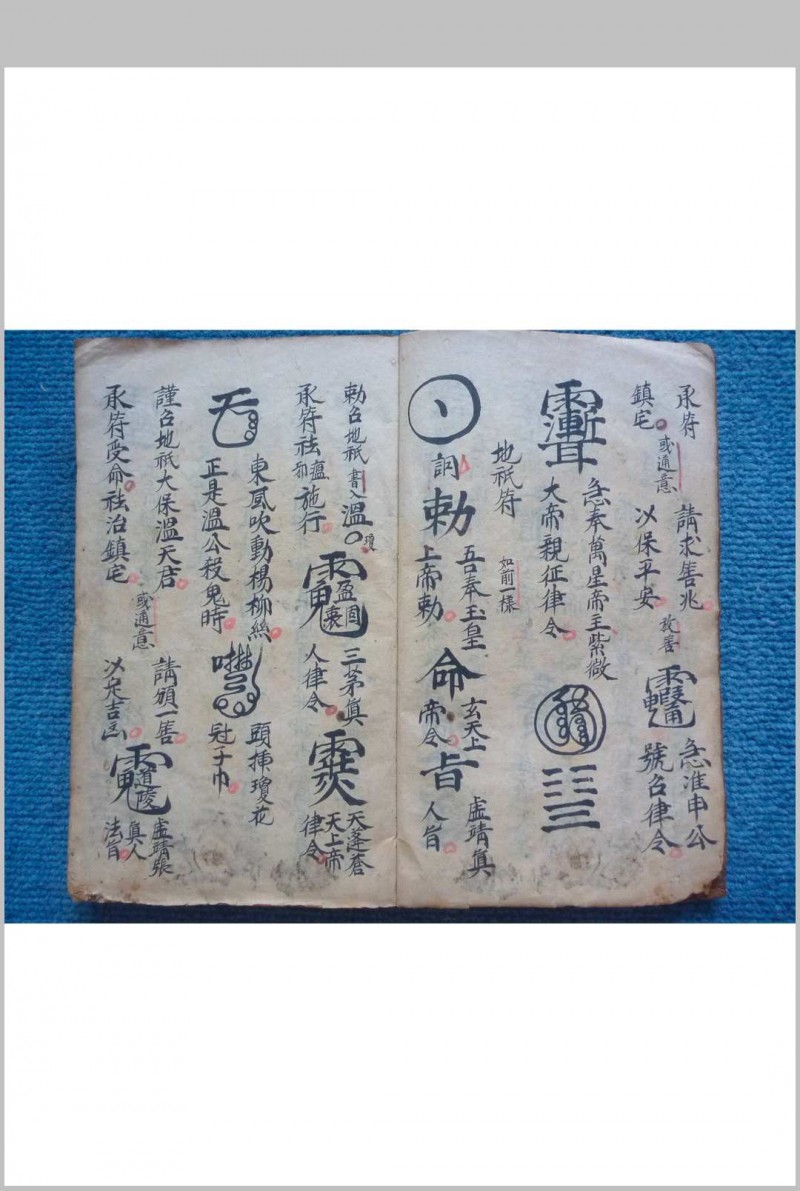 承符
鎮宅
或通意
請求善兆
以保平安
故善
急准申公
號召律令
急奉萬星帝主紫微
大帝親征律令
地祇符
如前一樣
詞
勅
吾奉玉皇
上帝勅
命
玄天上
帝令
旨
虛靖真
人旨
勅召地祇
書入
溫
瓊
承符祛瘟
施行
三茅真
人律令
天蓬蒼
天上帝
律令
東風吹動楊柳絲
正是溫公殺鬼時
頭揷瓊花
冠子巾
謹召地祇大保溫天君
承符受命祛治鎮宅
或通意
請頒一善
以定吉凶
道陵
虛靖張
真人
法旨